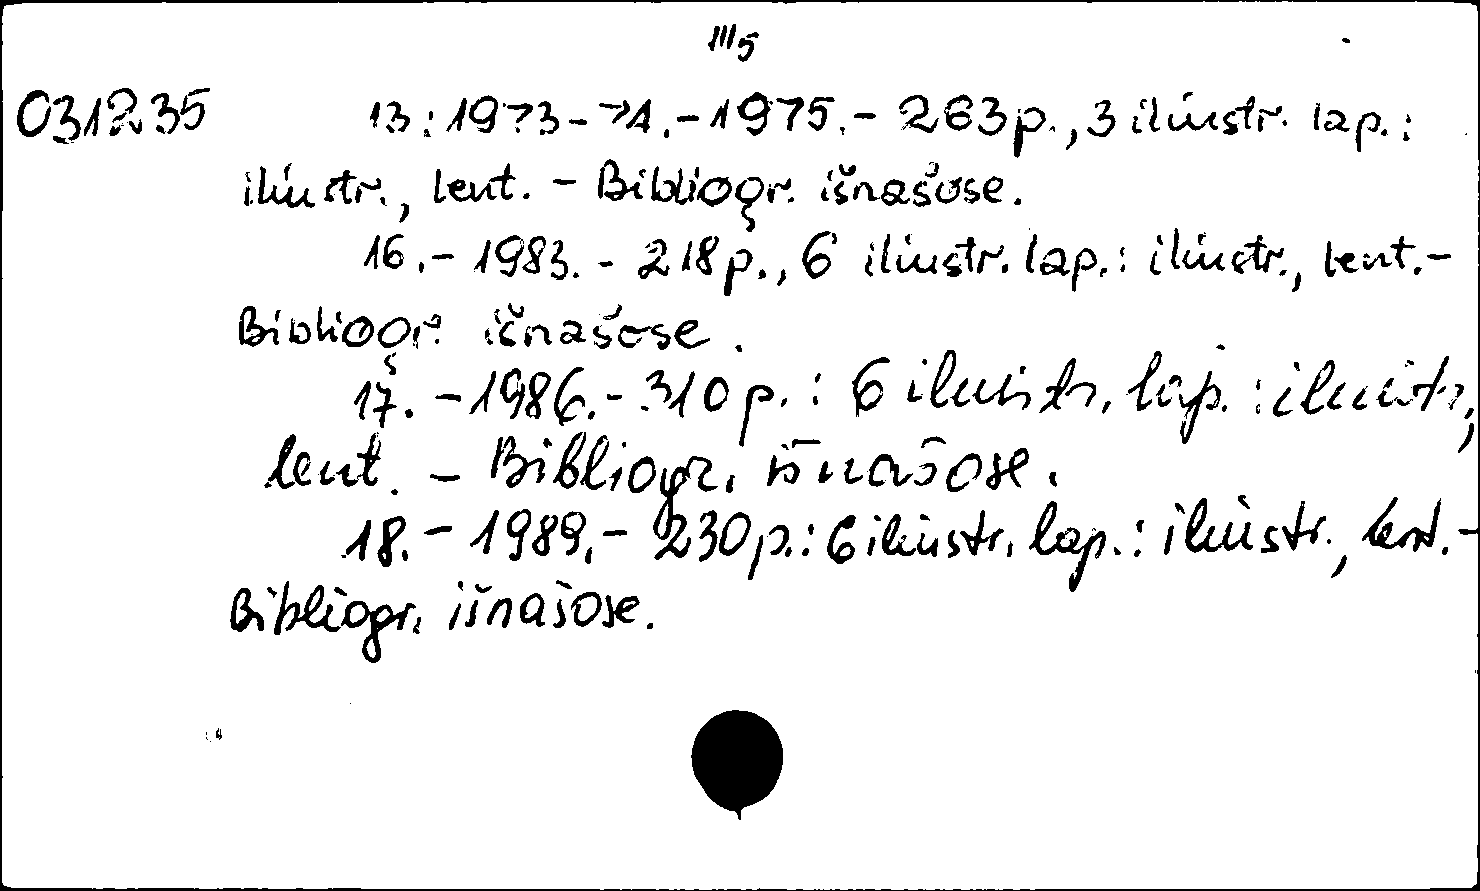 III5
031235 13: 1973-74.-1975.- 263p., 3 iliustr. lap.:
iliustr., lent. - Bibliogr. išnašose.
16.- 1983. - 218p., 6 iliustr. lap.: iliustr., lent.-
Bibliogr. išnašose.
17. - 1986.- 310 p.: 6 iliustr. lap.: iliustr.,
lent. - Bibliogr. išnašose.
18.- 1989.- 230p.: 6 iliustr. lap.: iliustr., lent.-
Bibliogr. išnašose.